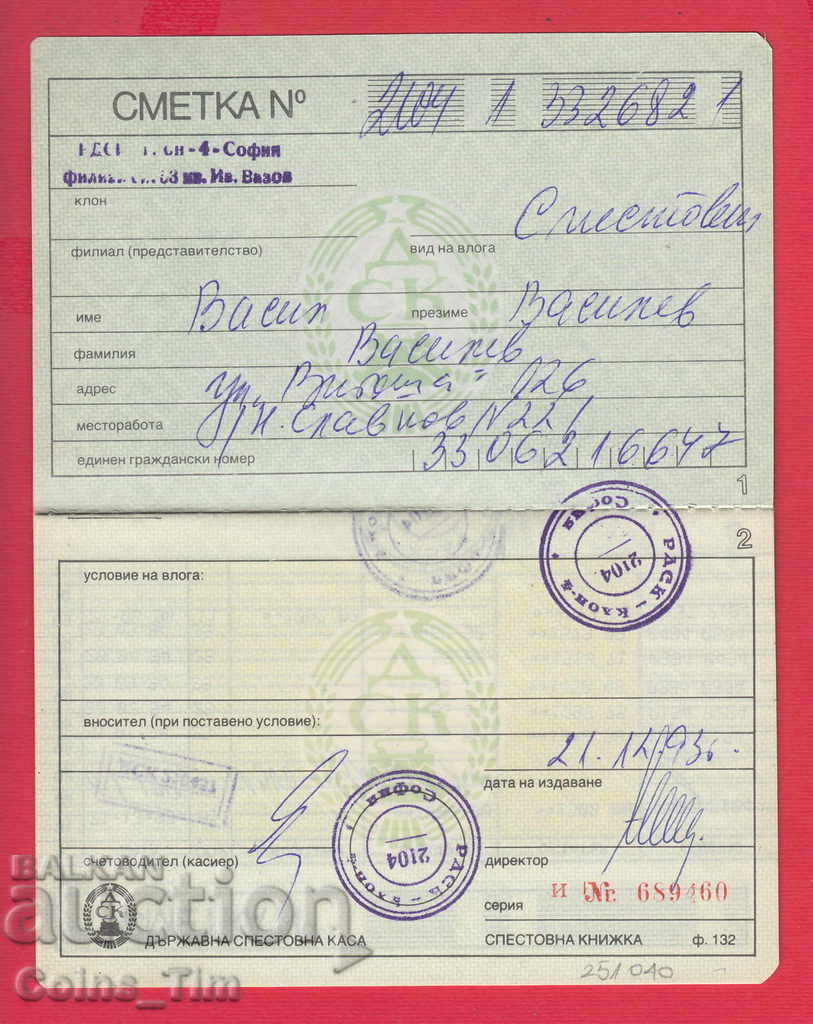 СМЕТКА № 2104 1 332682 1
-4-София
кв. Ив. Вазов
клон
Спестовен
филиал (представителство)
вид на влога
име Васил презиме Василев
фамилия Василев
адрес ул. "Витоша" 126
месторабота
единен граждански номер 3306216647
1
2
София
РДСК - клон-4
2104
условие на влога:
ДСК
вносител (при поставено условие):
21.12.93г.
дата на издаване
София
РДСК - клон-4
2104
счетоводител (касиер)
директор
серия И № 689460
ДСК
ДЪРЖАВНА СПЕСТОВНА КАСА
СПЕСТОВНА КНИЖКА ф. 132
251040
BALKAN
auction
Coins_Tim